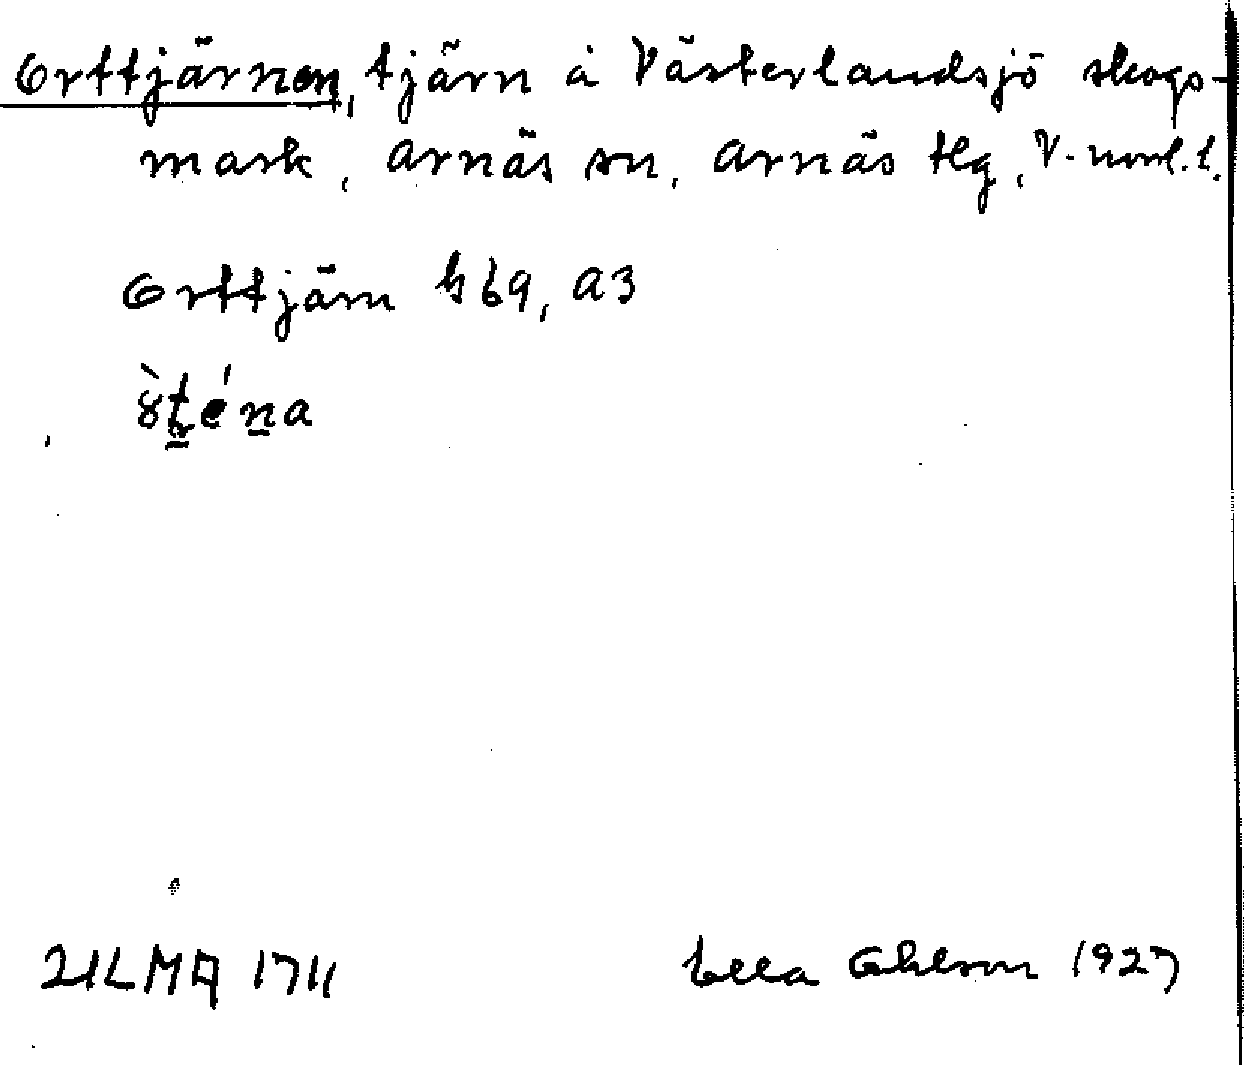 Orttjärnen, tjärn å Västerlandsjö skogs-
mark, Arnäs sn, Arnäs tlg, V-norrl. l.
Orttjärn h 69, a3
ULMA 1711
Ella Ohlson 1927